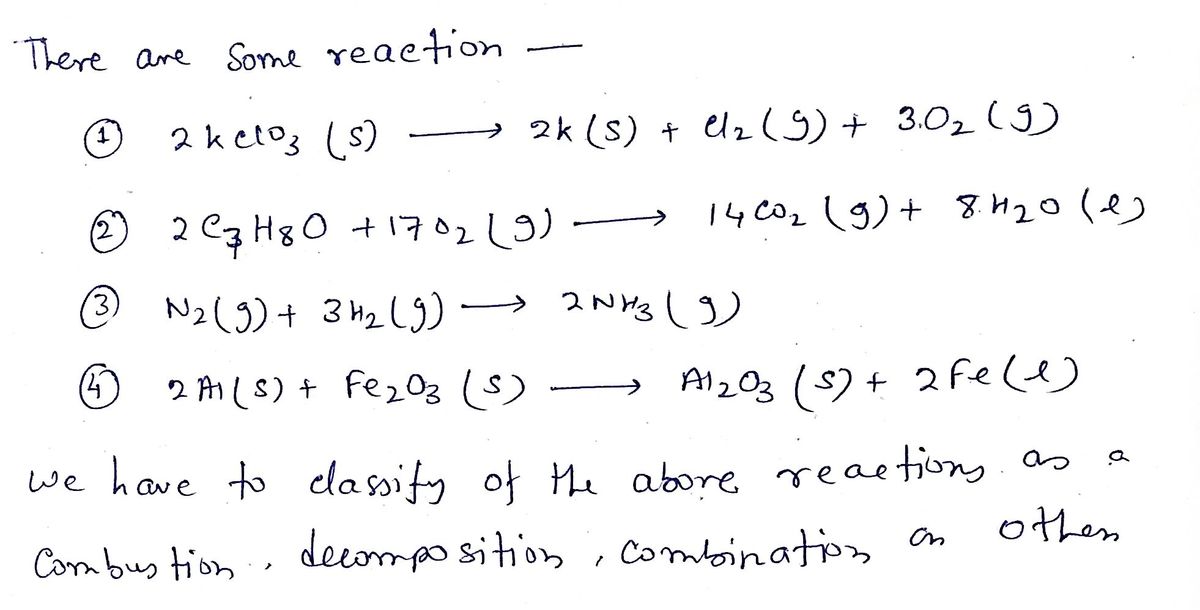 There are some reaction —
① 2KClO₃ (s) ⟶ 2K (s) + Cl₂ (g) + 3.O₂ (g)
② 2C₇H₈O + 17O₂ (g) ⟶ 14CO₂ (g) + 8.H₂O (l)
③ N₂(g) + 3H₂(g) ⟶ 2NH₃ (g)
④ 2Al(s) + Fe₂O₃ (s) ⟶ Al₂O₃ (s) + 2Fe(l)
we have to classify of the above reactions as a
Combustion, decomposition, combination or other